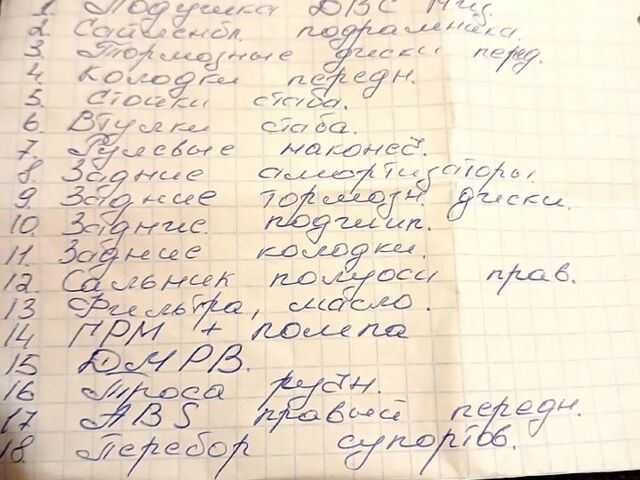 1 Подушка ДВС
2. Сайленбл. подрамника.
3. Тормозные диски перед.
4. Колодки передн.
5. Стойки стаба.
6. Втулки стаба.
7. Рулевые наконеч.
8 Задние амортизаторы.
9. Задние тормозн. диски.
10. Задние. подшип.
11. Задние колодки.
12. Сальник полуоси прав.
13 Фильтра, масло.
14 ГРМ + помпа
15 ДМРВ.
16 Троса ручн.
17 ABS правый передн.
18. Перебор супортов.